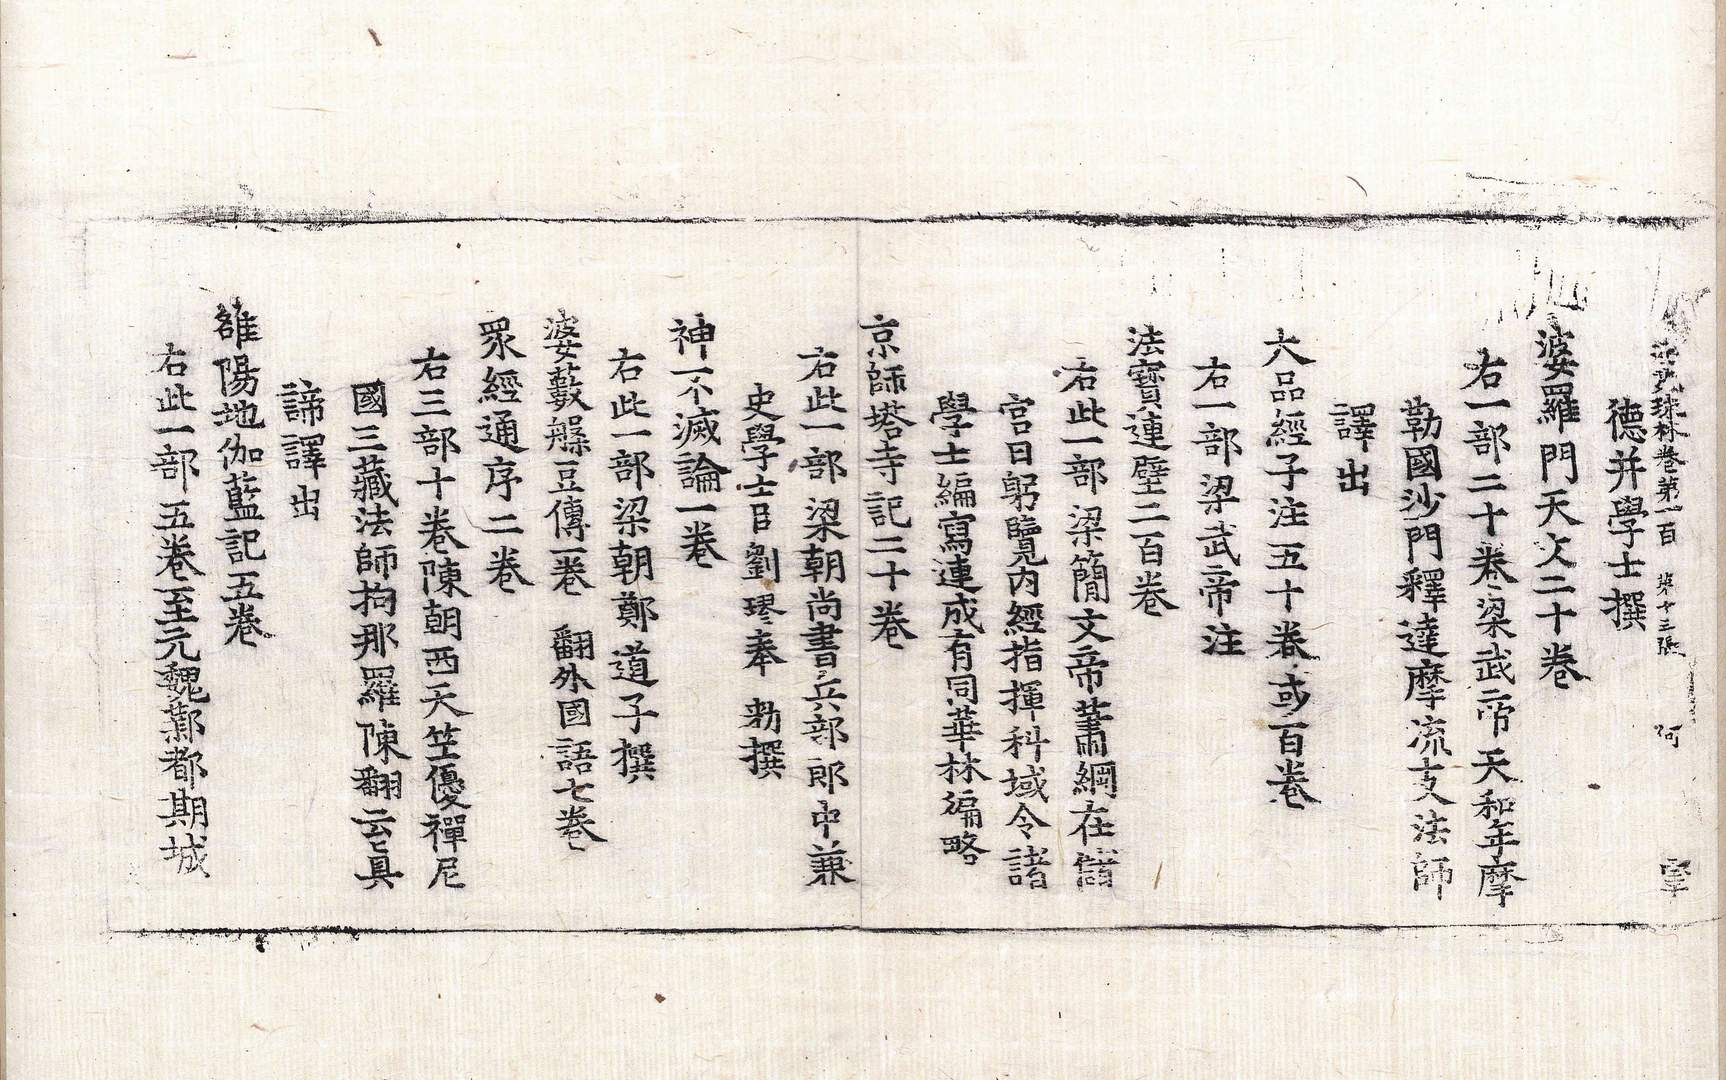 法苑珠林卷第一百 第十三張 阿 宰
德并學士撰
婆羅門天文二十卷
右一部二十卷梁武帝天和年摩
勒國沙門釋達摩流支法師
譯出
大品經子注五十卷或百卷
右一部梁武帝注
法寶連璧二百卷
右此一部梁簡文帝蕭綱在儲
宮日躬覽內經指揮科域令諸
學士編寫連成有同華林遍略
京師塔寺記二十卷
右此一部梁朝尚書兵部郎中兼
史學士臣劉璆奉 勑撰
神不滅論一卷
右此一部梁朝鄭道子撰
婆藪槃豆傳一卷 翻外國語七卷
眾經通序二卷
右三部十卷陳朝西天竺優禪尼
國三藏法師拘那羅陳翻云真
諦譯出
雒陽地伽藍記五卷
右此一部五卷至元魏鄴都期城